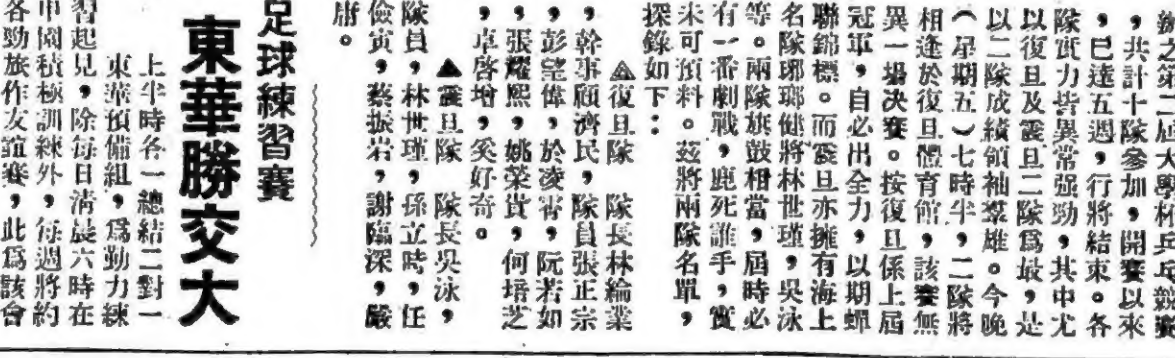 辦之第二屆大學杯乒乓競賽
，共計十隊參加，開賽以來
，已達五週，行將結束。各
隊實力皆異常强勁，其中尤
以復旦及震旦二隊爲最，是
以二隊成績領袖羣雄。今晚
（星期五）七時半，二隊將
相逢於復旦體育館，該賽無
異一場决賽。按復旦係上屆
冠軍，自必出全力，以期蟬
聯錦標。而震旦亦擁有海上
名隊琊瑯健將林世瑾，吳泳
等。兩隊旗鼓相當，屆時必
有一番劇戰，鹿死誰手，實
未可預料。茲將兩隊名單，
探錄如下：
△復旦隊　隊長林綸業
，幹事顧濟民，隊員張正宗
，彭望偉，於凌霄，阮若如
，張耀熙，姚榮貴，何培芝
，卓啓增，奚好奇。
▲震旦隊　隊長吳泳，
隊員，林世瑾，孫立時，任
儉寅，蔡振岩，謝臨深，嚴
庸。
足球練習賽
東華勝交大
上半時各一總結二對一
東華預備組，爲勤力練
習起見，除每日清晨六時在
申園積極訓練外，每週將約
各勁旅作友誼賽，此爲該會